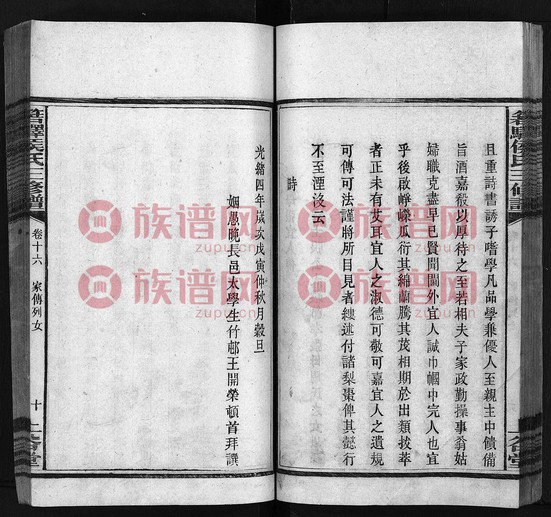 且重詩書誘子嗜學凡品學兼優人至親主中饋備
旨酒嘉殽以厚待之至若相夫子家政勤操事翁姑
婦職克盡早已賢聞閫外宜人誠巾幗中完人也宜
乎後啟崢嶸瓜衍其緜蘭騰其茂相期於出類拔萃
者正未有艾耳宜人之淑德可敬可嘉宜人之遺規
可傳可法謹將所目見者縷述付諸梨棗俾其懿行
不至湮沒云
時
光緒四年歲次戊寅仲秋月穀旦
姻愚晚長邑太學生竹邨王開榮頓首拜譔
三修譜
卷十六
家傳列女
十
族谱网
zupu.cn
族谱网
zupu.cn
族谱网
zupu.cn
族谱网
zupu.cn